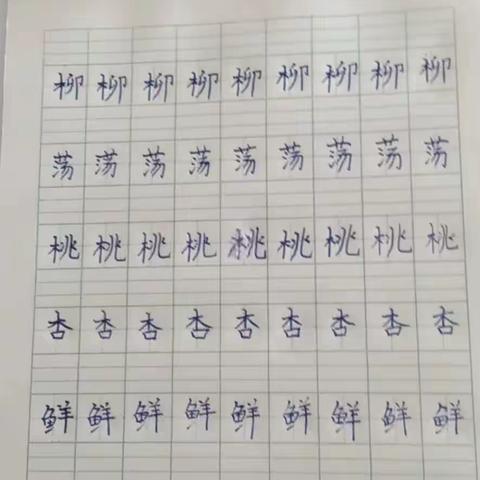 柳柳柳柳柳柳柳柳柳
荡荡荡荡荡荡荡荡荡
桃桃桃桃桃桃桃桃桃
杏杏杏杏杏杏杏杏杏
鲜鲜鲜鲜鲜鲜鲜鲜鲜